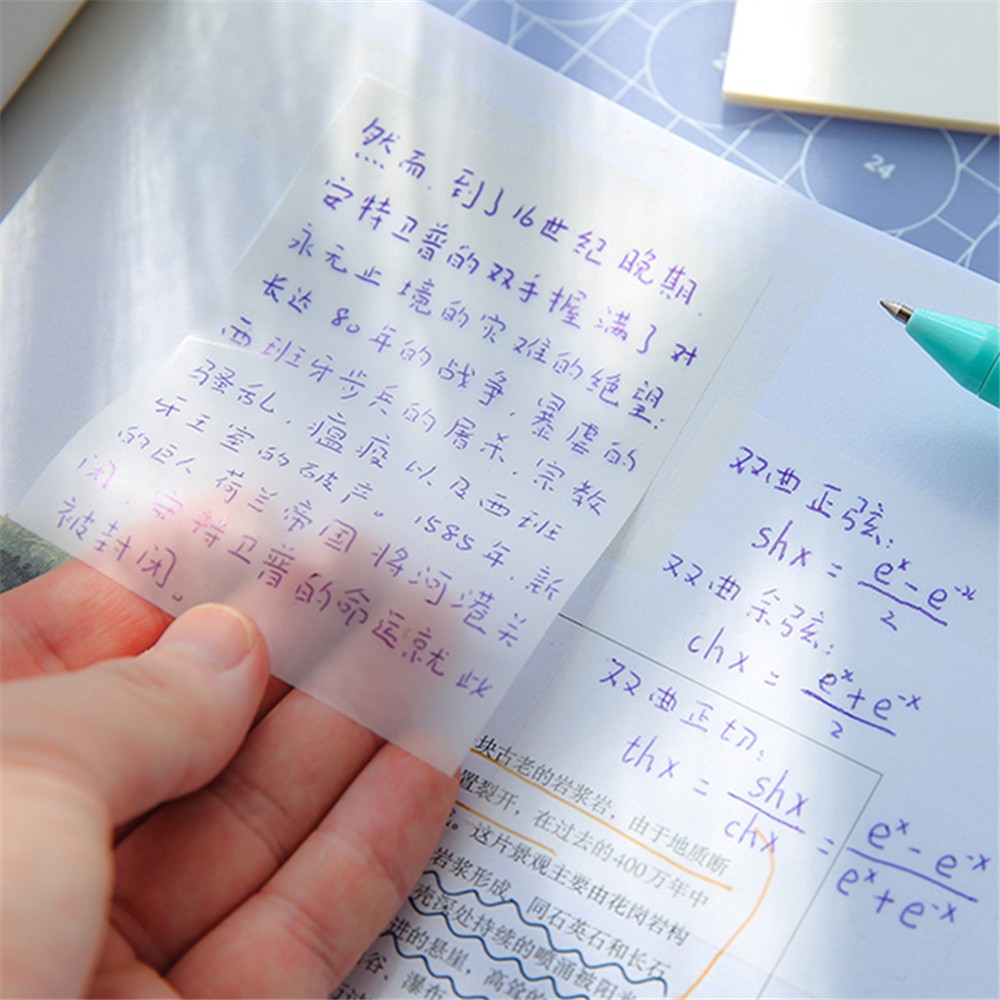 然而,到了16世纪晚期,
安特卫普的双手握满了对
永无止境的灾难的绝望:
长达80年的战争,暴虐的
西班牙步兵的屠杀,宗教
骚乱,瘟疫以及西班
牙王室的破产。1585年,新
的巨人荷兰帝国将河港关
闭,安特卫普的命运就此
被封闭。
24
双曲正弦:
shx = (e^x - e^-x)/2
双曲余弦:
chx = (e^x + e^-x)/2
双曲正切:
thx = shx/chx = (e^x - e^-x)/(e^x + e^-x)
块古老的岩浆岩,由于地质断
置裂开,在过去的400万年中
。这片景观主要由花岗岩构
岩浆形成,同石英石和长石
壳深处持续的喷涌被阳光
进的悬崖,高耸的
谷、瀑布